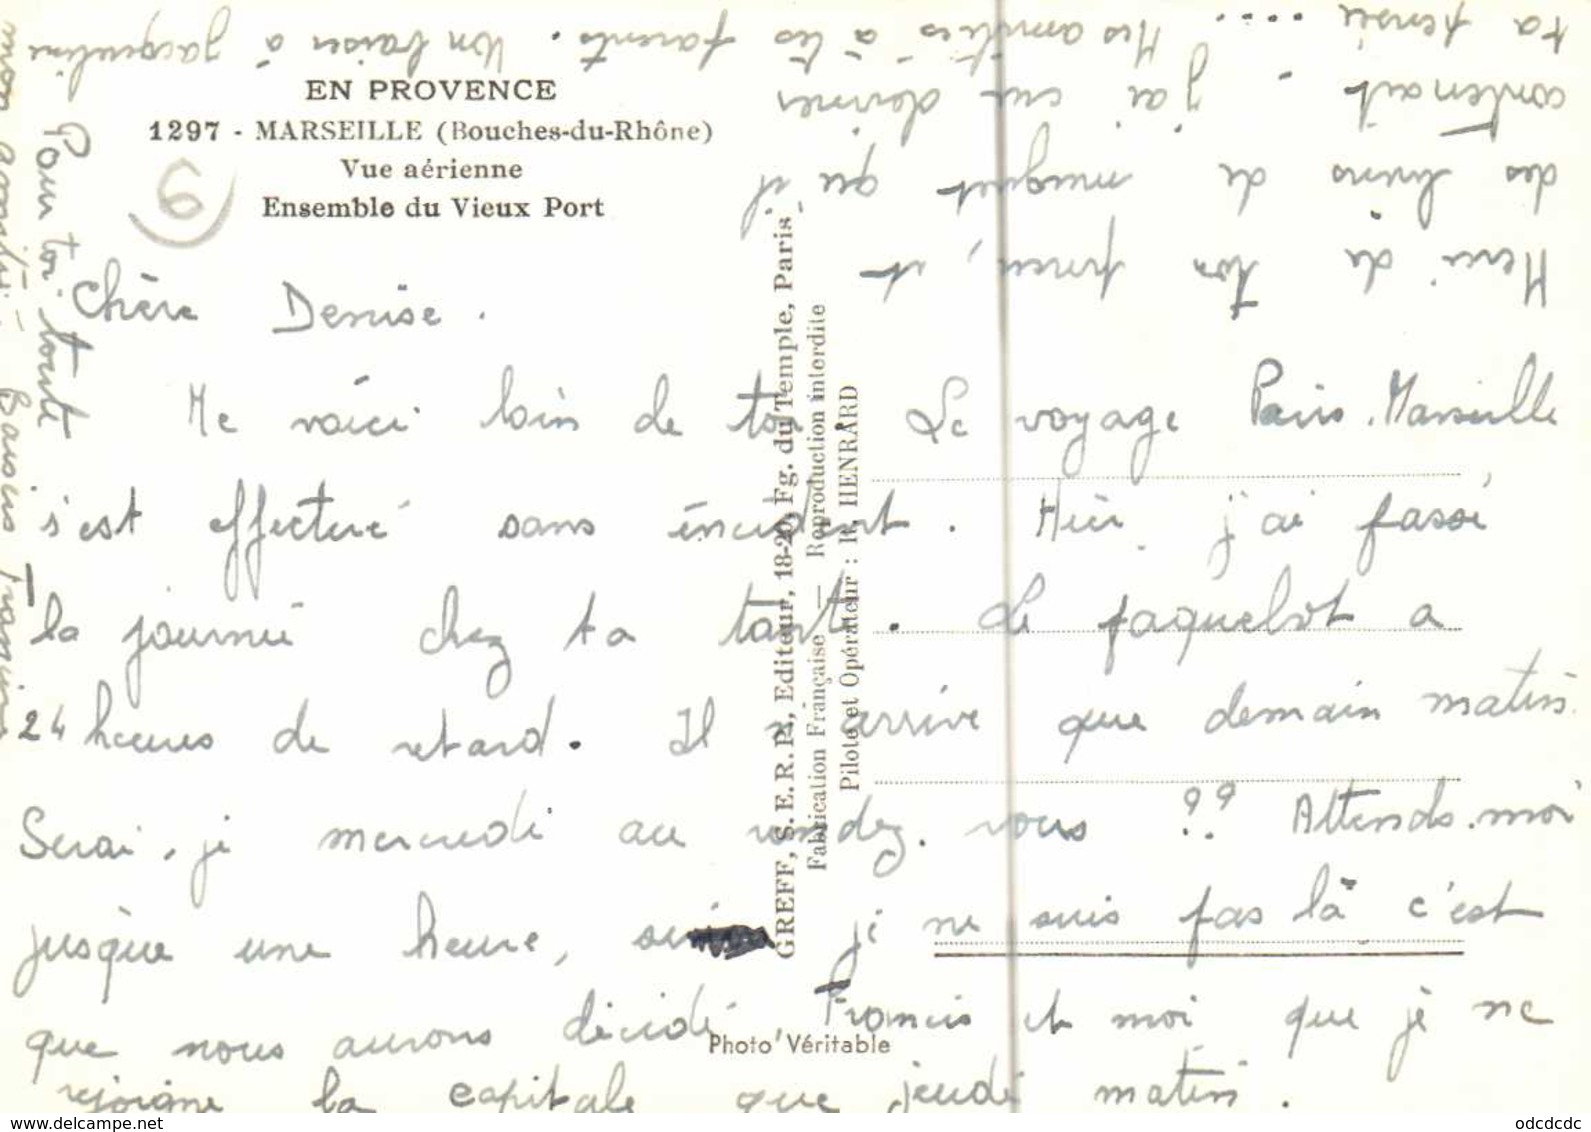 EN PROVENCE
1297 - MARSEILLE (Bouches-du-Rhône)
Vue aérienne
Ensemble du Vieux Port
9
Chère Denise.
Me voici loin de toi. Le voyage Paris. Marseille
s'est effectué sans incident. Hier j'ai passé
la journée chez ta tante. Le paquebot a
24 heures de retard. Il n'arrive que demain matin.
Serai-je mercredi au rendez-vous ?? Attends-moi
jusque une heure, si je ne suis pas là c'est
que nous aurons décidé Francis et moi que je ne
rejoigne la capitale que jeudi matin.
Merci de ton pneu, et
des brins de muguet qu'il
contenait. j'ai cru deviner
ta pensée .... Mes amitiés à tes parents. Un baiser à Jacqueline
Pour toi toute
mon Baisers Francine
GREFF, S. E. R. P., Editeur, 18-20, Fg. du Temple, Paris
Fabrication Française — Reproduction interdite
Pilote et Opérateur : R. HENRARD
Photo Véritable
www.delcampe.net
odcdcdc